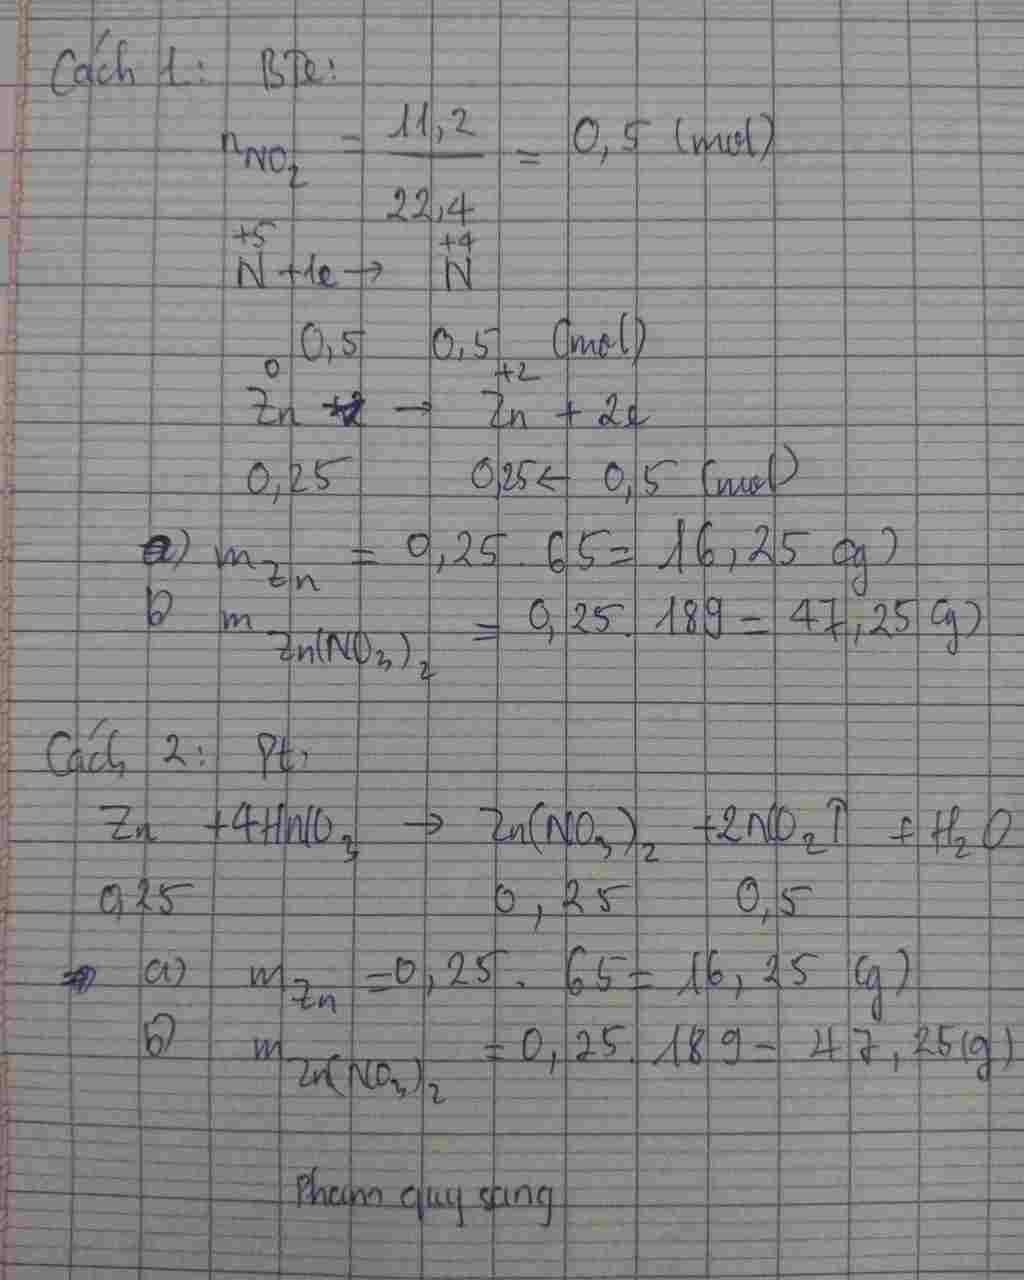 Cách 1: BTe:
nNO₂ = 11,2 / 22,4 = 0,5 (mol)
+5 +4
N + 1e → N
0,5 0,5 (mol)
0 +2
Zn → Zn + 2e
0,25 0,25 ← 0,5 (mol)
a) mZn = 0,25 . 65 = 16,25 (g)
b) mZn(NO₃)₂ = 0,25 . 189 = 47,25 (g)
Cách 2: Pt:
Zn + 4HNO₃ → Zn(NO₃)₂ + 2NO₂↑ + H₂O
0,25 0,25 0,5
⇒ a) mZn = 0,25 . 65 = 16,25 (g)
b) mZn(NO₃)₂ = 0,25 . 189 = 47,25 (g)
Pham quy sang